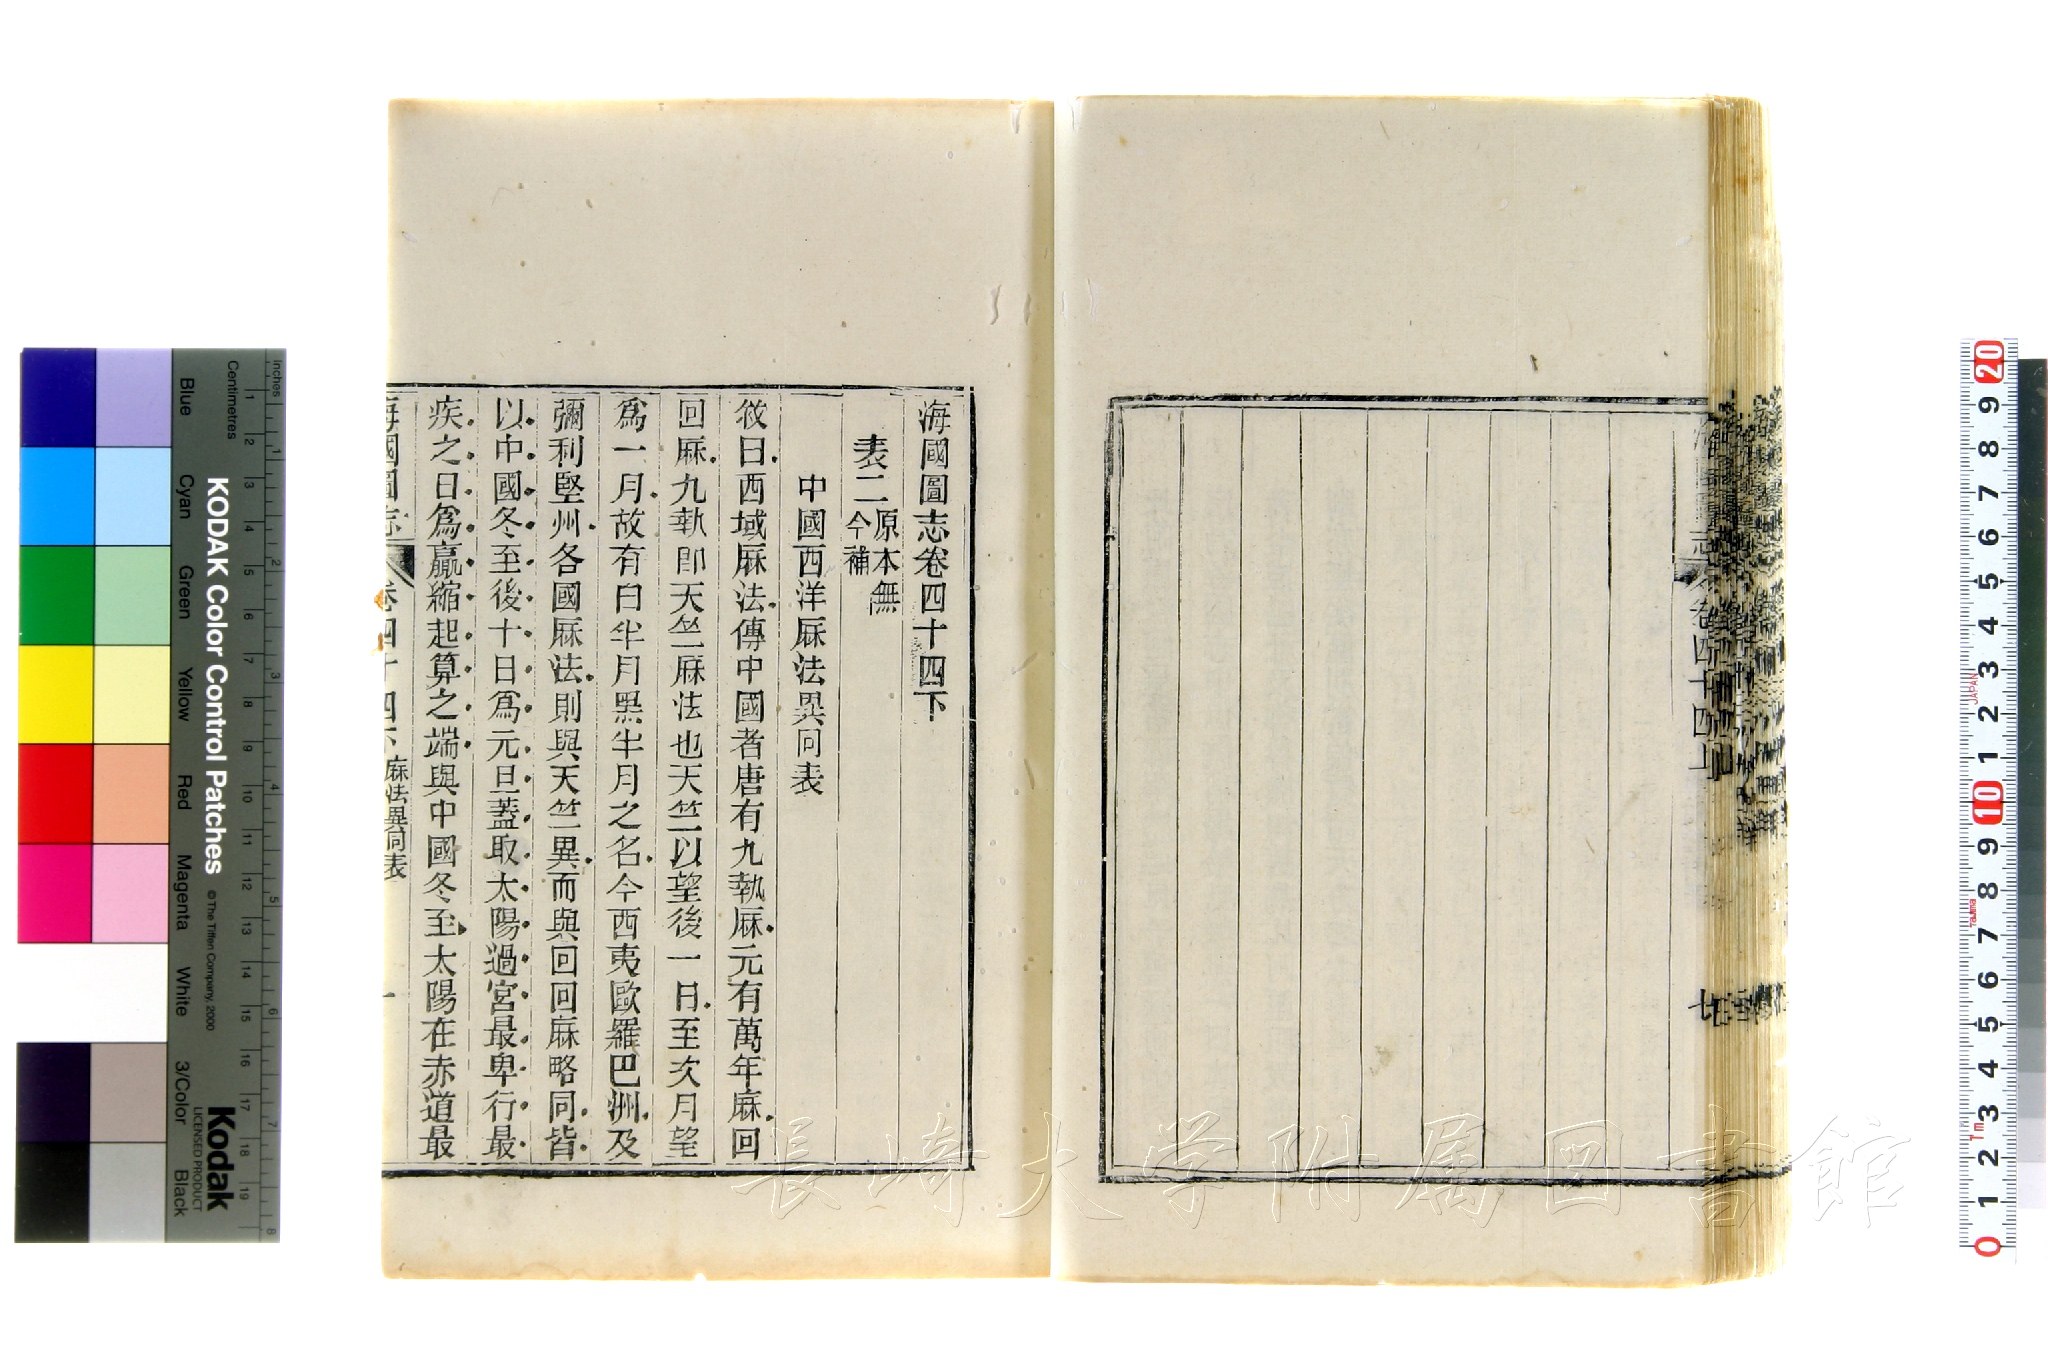 海國圖志卷四十四下
表二 原本無今補
中國西洋厤法異同表
敘曰西域厤法傳中國者唐有九執厤元有萬年厤回
回厤九執卽天竺厤法也天竺以望後一日至次月望
爲一月故有白半月黑半月之名今西夷歐羅巴洲及
彌利堅州各國厤法則與天竺異而與回回厤略同皆
以中國冬至後十日爲元旦蓋取太陽過宮最卑行最
疾之日爲贏縮起算之端與中國冬至太陽在赤道最
海國圖志 卷四十四下 厤法異同表 一
志 卷四十四上
七
長崎大学附属図書館
Inches
Centimetres
KODAK Color Control Patches
© The Tiffen Company, 2000
Kodak
LICENSED PRODUCT
Blue Cyan Green Yellow Red Magenta White 3/Color Black
1 2 3 4 5 6 7 8 9 10 11 12 13 14 15 16 17 18 19
1 2 3 4 5 6 7 8
20 9 8 7 6 5 4 3 2 1 10 9 8 7 6 5 4 3 2 1 0
JAPAN